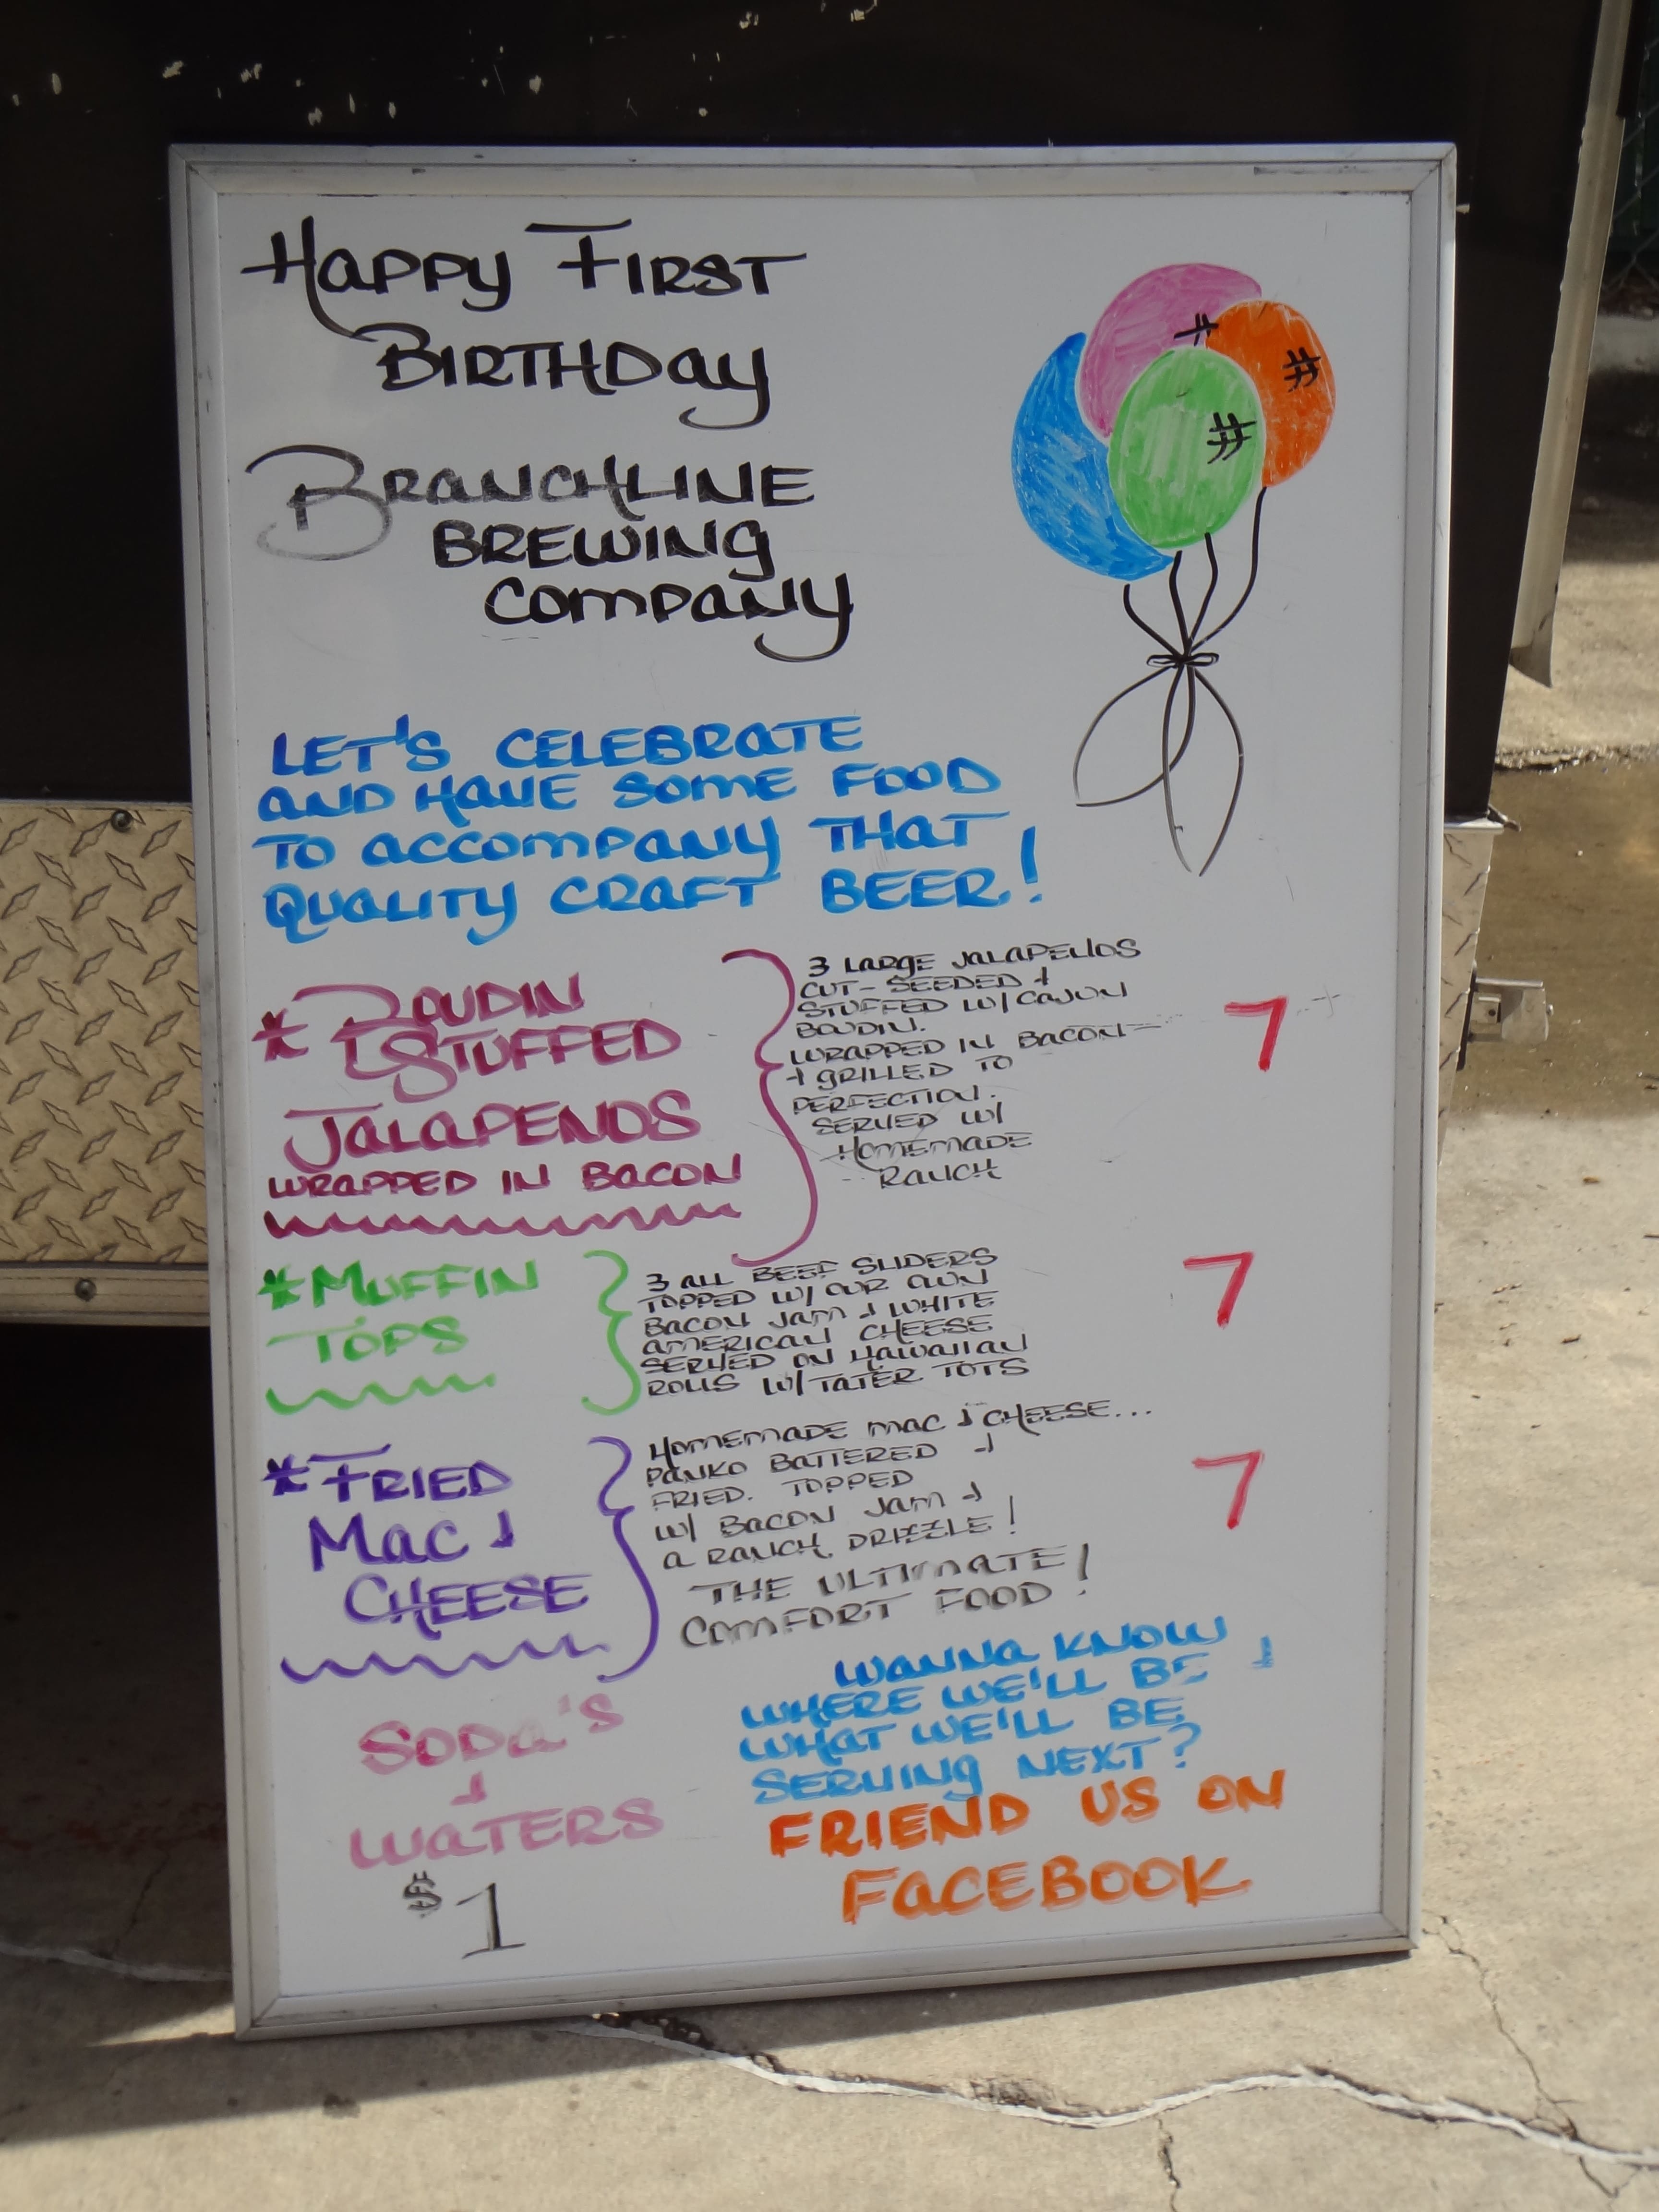 Happy First
Birthday
Branchline
Brewing
Company
Let's celebrate
and have some food
to accompany that
quality craft beer!
* Boudin
Stuffed
Jalapenos
wrapped in bacon
3 large jalapenos
cut - seeded +
stuffed w/ cajun
boudin.
wrapped in bacon -
+ grilled to
perfection.
served w/
homemade
ranch
7
* Muffin
Tops
3 all beef sliders
topped w/ our own
bacon jam + white
american cheese
served on hawaiian
rolls w/ tater tots
7
* Fried
Mac +
Cheese
Homemade mac + cheese...
panko battered +
fried. topped
w/ bacon jam +
a ranch drizzle!
The ultimate
comfort food!
7
Soda's
+
Waters
$1
Wanna know
where we'll be +
what we'll be
serving next?
Friend us on
Facebook